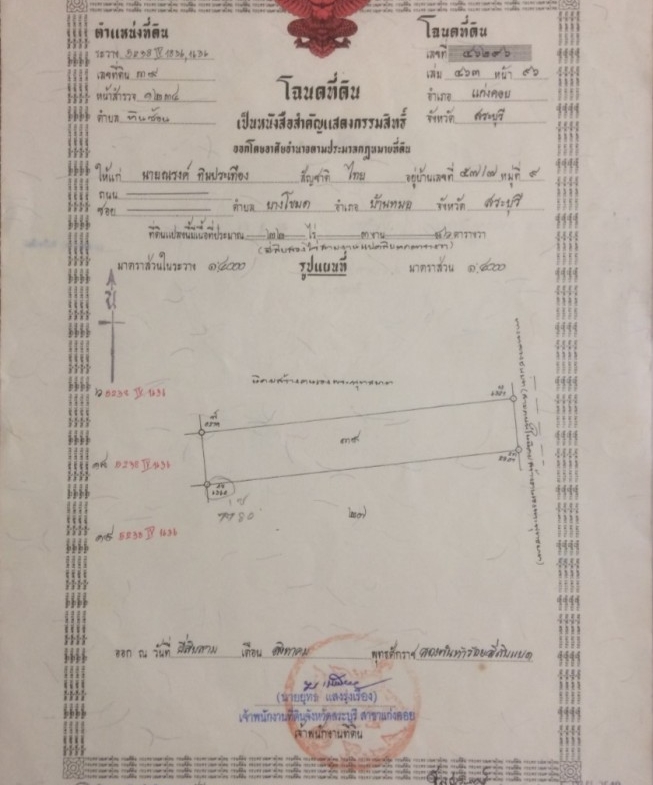 ตำแหน่งที่ดิน
ระวาง 5238 IV 1636, 1636
เลขที่ดิน ๓๙
หน้าสำรวจ ๑๒๓๔
ตำบล หินซ้อน
โฉนดที่ดิน
เลขที่ ๔๖๒๙๖
เล่ม ๔๖๓ หน้า ๙๖
อำเภอ แก่งคอย
จังหวัด สระบุรี
โฉนดที่ดิน
เป็นหนังสือสำคัญแสดงกรรมสิทธิ์
ออกโดยอาศัยอำนาจตามประมวลกฎหมายที่ดิน
ให้แก่ นายณรงค์ ทิมประเทือง สัญชาติ ไทย อยู่บ้านเลขที่ ๕๗/๗ หมู่ที่ ๙
ถนน
ซอย ตำบล บางโขมด อำเภอ บ้านหมอ จังหวัด สระบุรี
ที่ดินแปลงนี้มีเนื้อที่ประมาณ ๒๒ ไร่ ๓ งาน ตารางวา
มาตราส่วนในระวาง ๑:๔๐๐๐ รูปแผนที่ มาตราส่วน ๑:๔๐๐๐
น
5238 IV 1636
๓๙
5238 IV 1636
๒๗
5238 IV 1636
ออก ณ วันที่ ยี่สิบสาม เดือน สิงหาคม พุทธศักราช สองพันห้าร้อยสี่สิบแปด
(นายยุทธ แสงรุ่งเรือง)
เจ้าพนักงานที่ดินจังหวัดสระบุรี สาขาแก่งคอย
เจ้าพนักงานที่ดิน